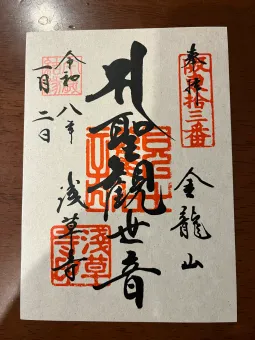 奉拝
坂東拾三番
金龍山
聖観世音
浅草寺
令和八年
一月二日